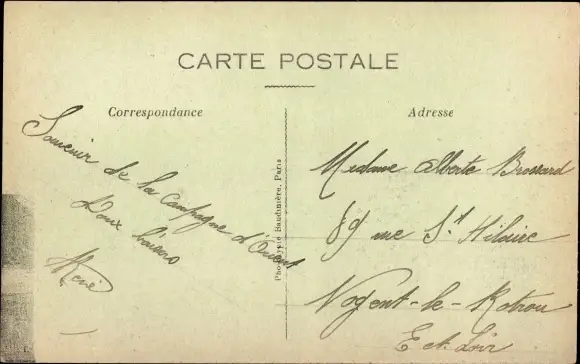 CARTE POSTALE
Correspondance
Adresse
Souvenir de la Campagne d'Orient
Doux baisers
René
Photographie Baudinière, Paris
Madame Alberte Brossard
89 rue St Hilaire
Nogent-le-Rotrou
E et Loir